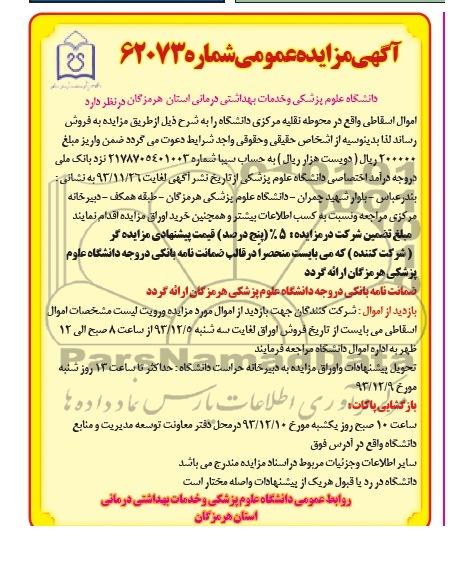 آگهی مزایده عمومی شماره ۶۲۰۷۳
دانشگاه علوم پزشکی وخدمات بهداشتی درمانی استان هرمزگان درنظر دارد
اموال اسقاطی واقع در محوطه نقلیه مرکزی دانشگاه را به شرح ذیل ازطریق مزایده به فروش
رساند لذا بدینوسیله از اشخاص حقیقی وحقوقی واجد شرایط دعوت می گردد ضمن واریز مبلغ
۲۰۰۰۰۰ ریال ( دویست هزار ریال ) به حساب سیبا شماره ۲۱۷۸۷۰۵۴۰۱۰۰۳ نزد بانک ملی
دروجه درآمد اختصاصی دانشگاه علوم پزشکی از تاریخ نشر آگهی لغایت ۹۳/۱۱/۲۶ به نشانی :
بندرعباس - بلوار شهید چمران - دانشگاه علوم پزشکی هرمزگان - طبقه همکف - دبیرخانه
مرکزی مراجعه ونسبت به کسب اطلاعات بیشتر و همچنین خرید اوراق مزایده اقدام نمایند
مبلغ تضمین شرکت درمزایده : ۵٪ (پنج درصد) قیمت پیشنهادی مزایده گر
( شرکت کننده ) که می بایست منحصرا در قالب ضمانت نامه بانکی دروجه دانشگاه علوم
پزشکی هرمزگان ارائه گردد
ضمانت نامه بانکی دروجه دانشگاه علوم پزشکی هرمزگان ارائه گردد
بازدید از اموال : شرکت کنندگان جهت بازدید از اموال مورد مزایده ورویت لیست مشخصات اموال
اسقاطی می بایست از تاریخ فروش اوراق لغایت سه شنبه ۹۳/۱۲/۵ از ساعت ۸ صبح الی ۱۲
ظهر به اداره اموال دانشگاه مراجعه فرمایند
تحویل پیشنهادات واوراق مزایده به دبیرخانه حراست دانشگاه : حداکثر تا ساعت ۱۳ روز شنبه
مورخ ۹۳/۱۲/۹
بازگشایی پاکات :
ساعت ۱۰ صبح روز یکشبه مورخ ۹۳/۱۲/۱۰ درمحل دفتر معاونت توسعه مدیریت و منابع
دانشگاه واقع در آدرس فوق
سایر اطلاعات وجزئیات مربوط دراسناد مزایده مندرج می باشد
دانشگاه در رد یا قبول هریک از پیشنهادات واصله مختار است
روابط عمومی دانشگاه علوم پزشکی وخدمات بهداشتی درمانی
استان هرمزگان
ParsNamadData
فرآوری اطلاعات پارس نماد داده ها